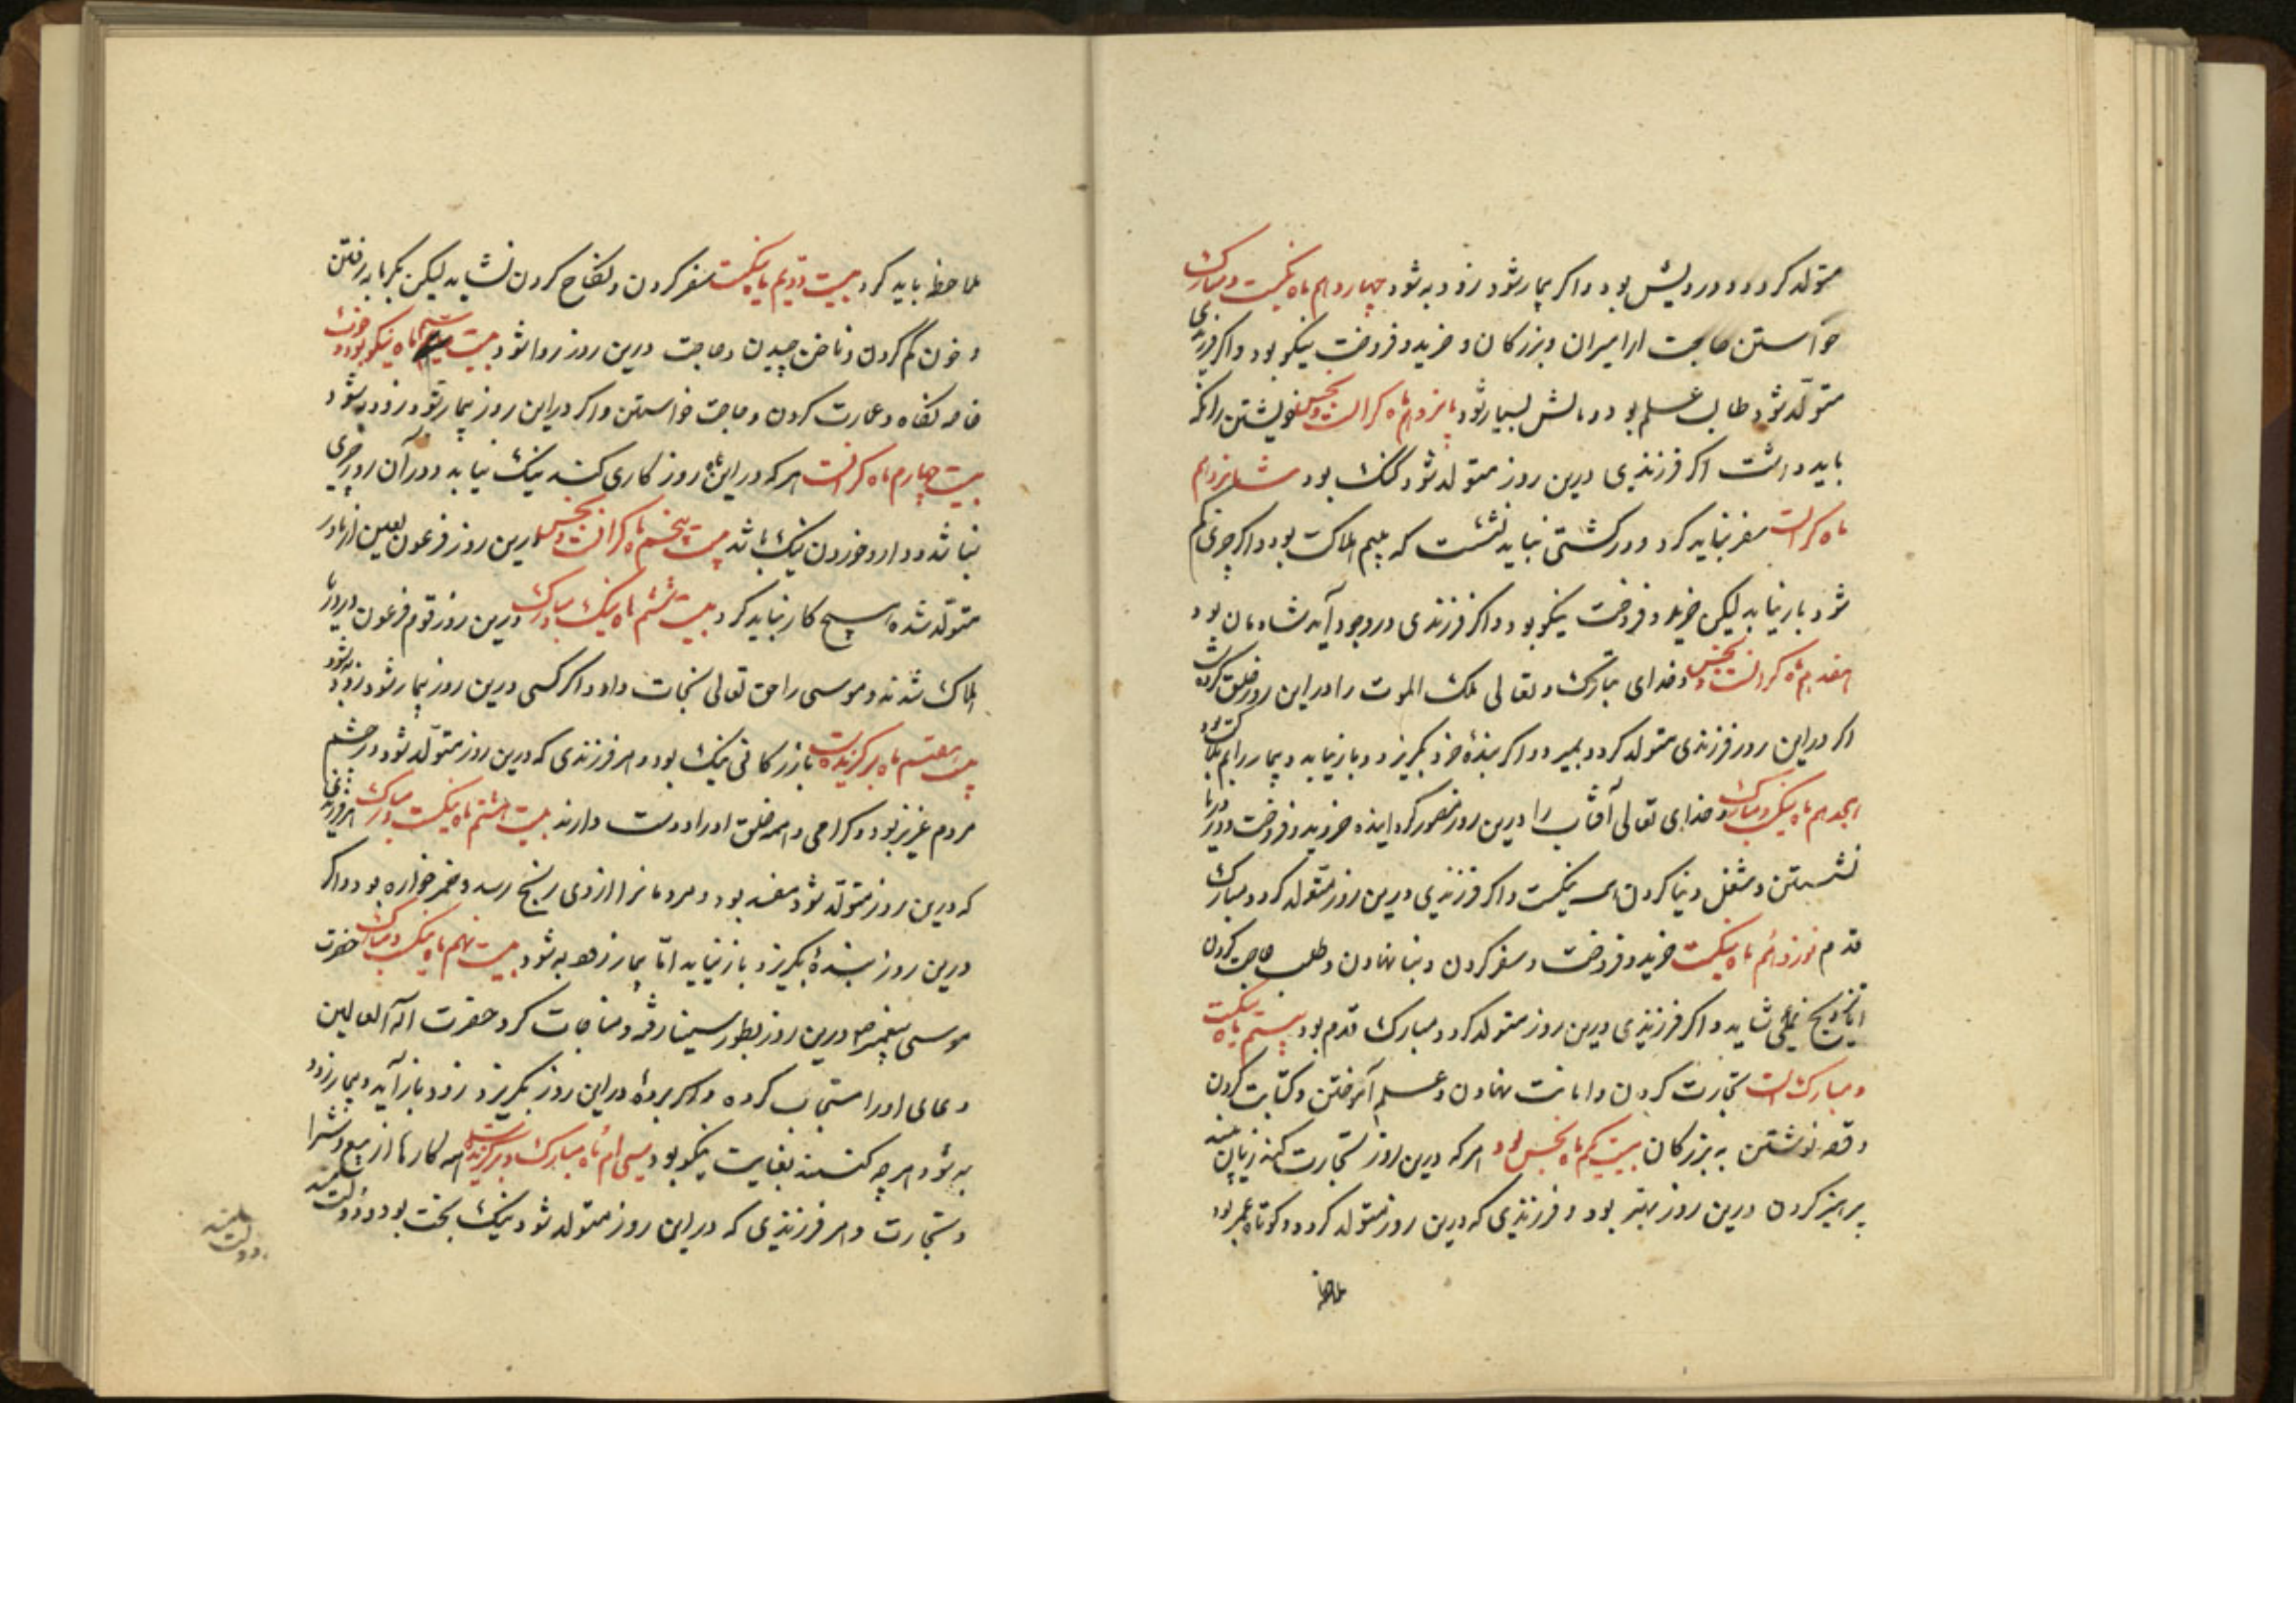 متولد کردد و درویش بود و اکر بیمار شود زود به شود چهاردهم ماه نیکست و مبارک
خواستن حاجت از امیران و بزرکان و خرید و فروخت نیکو بود و اکر فرزندی
متولد شود طالب علم بود و مالش بسیار شود پانزدهم ماه کرانست و نحس خویشتن را نکه
باید داشت اکر فرزندی درین روز متولد شود کنک بود شانزدهم
ماه کرانست سفر نباید کرد و در کشتی نباید نشست که بیم هلاکت بود و اکر چیزی کم
شود باز نیابد لیکن خرید و فروخت نیکو بود و اکر فرزندی در وجود آید شادمان بود
هفدهم ماه کرانست و نحس و خدای تبارک و تعالی ملک الموت را در این روز خلق کرده
اکر در این روز فرزندی متولد کردد بمیرد و اکر بندهٔ خرد بکریزد و باز نیابد و بیمار را بیم هلاکت بود
هجدهم ماه نیک و مبارک و خدای تعالی آفتاب را درین روز خرید و فروخت و در دریا
نشستن و شغل دنیا کردن نیکست و اکر فرزندی درین روز متولد کردد مبارک
قدم نوزدهم ماه نیکست خرید و فروخت و سفر کردن و بنا نهادن و طلب حاجت کردن
شاید و اکر فرزندی درین روز متولد کردد مبارک قدم بود بیستم ماه نیکست
و مبارکست تجارت کردن و امانت نهادن و علم آموختن و کتابت کردن
و قصه نوشتن به بزرکان بیست یکم ماه نحس بود هر که درین روز تجارت کند زیان بیند
پرهیز کردن درین روز بهتر بود و فرزندی که درین روز متولد کردد کوتاه عمر بود
ملاحظه
ملاحظه باید کرد بیست دویم ماه نیکست سفر کردن و نکاح کردن نشاید لیکن بکرمابه رفتن
و خون کم کردن و ناخن چیدن و حاجت درین روز روا شود بیست سیم ماه نیکو بود و خوش
خاصه نکاه و عمارت کردن و حاجت خواستن و اکر در این روز بیمار شود زود به شود
بیست چهارم ماه کرانست هر که در این روز کاری کند نیک نیاید و در آن روز خیری
نباشد و دارو خوردن نیک باشد بیست پنجم ماه کرانست و نحس درین روز فرعون لعین از مادر
متولد شده هیچ کار نباید کرد بیست ششم ماه نیک و مبارک درین روز قوم فرعون در دریا
هلاک شدند و موسی را حق تعالی نجات داد و اکر کسی درین روز بیمار شود زود به شود
بیست هفتم ماه برکزیده است بازرکانی نیک بود و هر فرزندی که درین روز متولد شود در چشم
مردم عزیز بود و کرامی و همه خلق او را دوست دارند بیست هشتم ماه نیکست و مبارک هر فرزندی
که درین روز متولد شود مفسد بود و مردمانرا از وی رنج رسد و خمر خواره بود و اکر
درین روز بندهٔ بکریزد باز نیاید اما بیمار زود به شود بیست نهم ماه نیک و مبارک حضرت
موسی پیغمبر درین روز بطور سینا رفته و مناجات کرد حضرت اله العالمین
دعای او را استجاب کرده و اکر بردهٔ در این روز بکریزد زود باز آید و بیمار زود
به شود هر چه کنند بغایت نیکو بود سی ام ماه مبارک و برکزیده است همه کارها از بیع و شرا
و تجارت و هر فرزندی که در این روز متولد شود نیک بخت بود و دولتمند
دولتمند